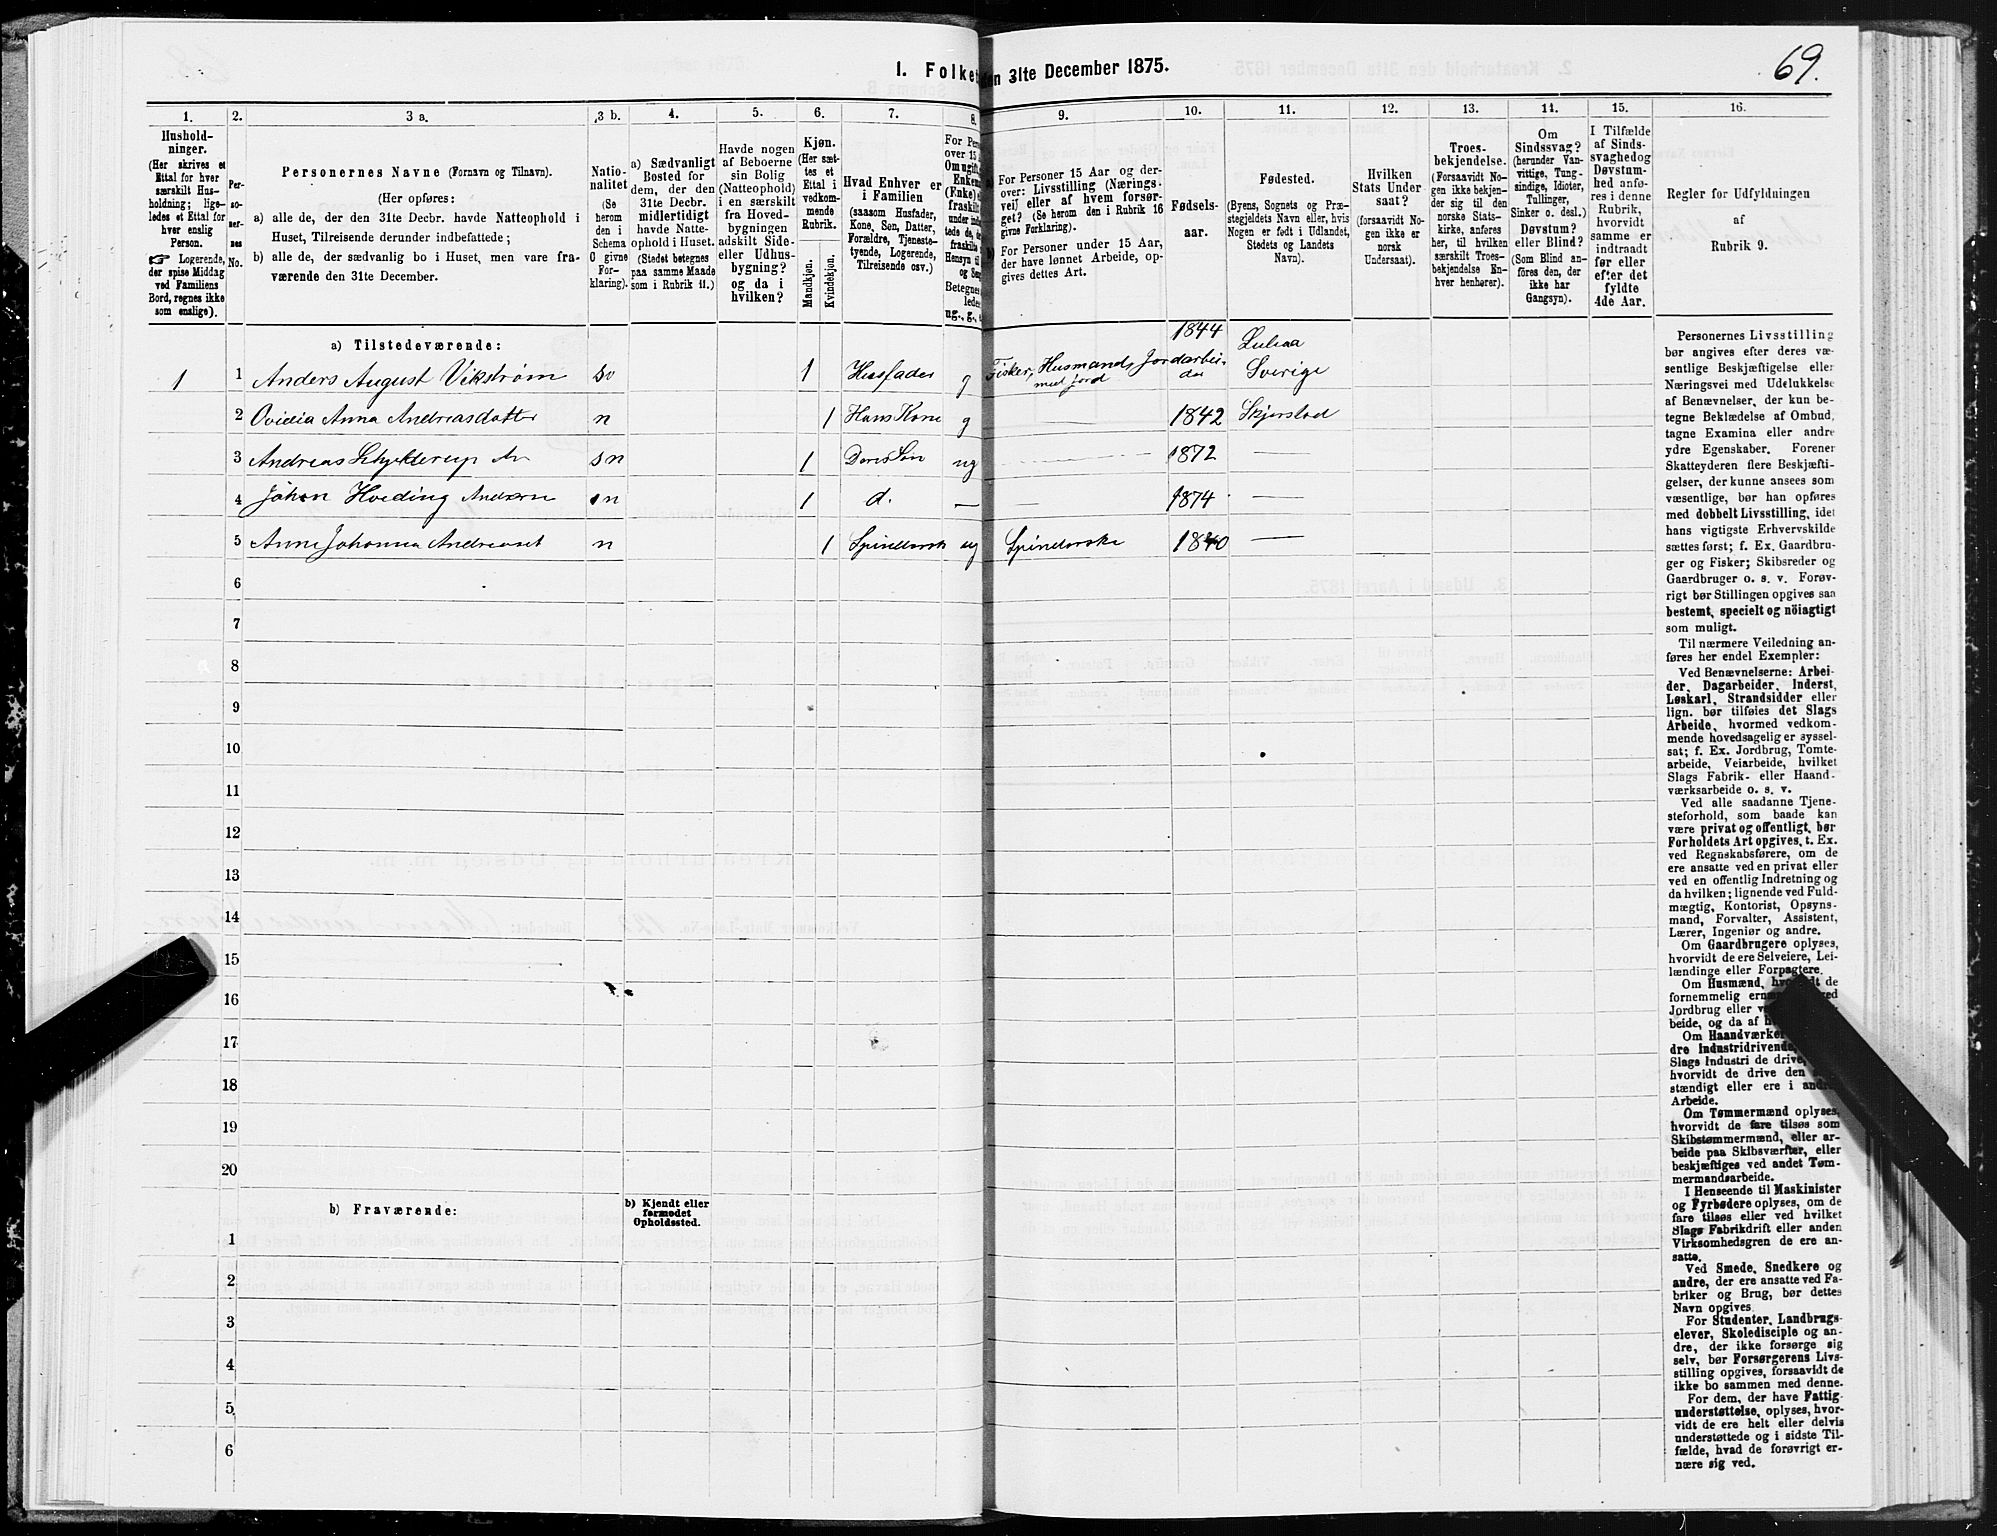 69.
1. Folket
den 31te December 1875.
1.
2.
3 a.
3 b.
4.
5.
6.
7.
8.
9.
10.
11.
12.
13.
14.
15.
16.
Hushold-
ninger.
(Her skrives et
Ettal for hver
særskilt Hus-
holdning; lige-
ledes et Ettal for
hver enslig
Person.
☞ Logerende,
der spise Middag
ved Familiens
Bord, regnes ikke
som enslige).
Per-
so-
ner-
nes
No.
Personernes Navne (Fornavn og Tilnavn).
(Her opføres:
a) alle de, der den 31te Decbr. havde Natteophold i
Huset, Tilreisende derunder indbefattede;
b) alle de, der sædvanlig bo i Huset, men vare fra-
værende den 31te December.
Natio-
nalitet
(Se
herom
den i
Schema
C givne
For-
klaring).
a) Sædvanligt
Bosted for
dem, der den
31te Decbr.
midlertidigt
havde Natte-
ophold i Huset.
(Stedet betegnes
paa samme Maade
som i Rubrik 11.)
Havde nogen
af Beboerne
sin Bolig
(Natteophold)
i en særskilt
fra Hoved-
bygningen
adskilt Side-
eller Udhus-
bygning?
og da i
hvilken?
Kjøn.
(Her sæt-
tes et
Ettal i
vedkom-
mende
Rubrik.
Mandkjøn.
Kvindekjøn.
Hvad Enhver er
i Familien
(saasom Husfader,
Kone, Søn, Datter,
Forældre, Tjeneste-
tyende, Logerende,
Tilreisende osv.)
For Pers
over 15
Om ugift,
Enkem
(Enke)
fraskilt
Betegnes
ledes
ug., g.,
For Personer 15 Aar og der-
over: Livsstilling (Nærings-
vei) eller af hvem forsør-
get? (Se herom den i Rubrik 16
givne Forklaring).
For Personer under 15 Aar,
der have lønnet Arbeide, op-
gives dettes Art.
Fødsels-
aar.
Fødested.
(Byens, Sognets og Præ-
stegjeldets Navn eller, hvis
Nogen er født i Udlandet,
Stedets og Landets
Navn).
Hvilken
Stats Under-
saat?
(forsaavidt No-
gen ikke er
norsk
Undersaat).
Troes-
bekjendelse.
(Forsaavidt No-
gen ikke bekjen-
der sig til den
norske Stats-
kirke, anføres
her, til hvilken
særskilt Troes-
bekjendelse En-
hver henhører).
Om
Sindssvag?
(herunder Van-
vittige, Tung-
sindige, Idioter,
Tullinger,
Sinker o. desl.)
Døvstum?
eller Blind?
(Som Blind an-
føres den, der
ikke har
Gangsyn).
I Tilfælde
af Sinds-
svaghed og
Døvstum-
hed anfø-
res i denne
Rubrik,
hvorvidt
samme er
indtraadt
før eller
efter det
fyldte
4de Aar.
Regler for Udfyldningen
af
Rubrik 9.
a) Tilstedeværende:
1 1 Anders August Vikstrøm so 1 Husfader g Fisker, Husmand med jord, Jordarbeider 1844 Luleaa Sverige
2 Ovidia Anna Andreasdatter n 1 Hans Kone g 1842 Skjerstad
3 Andreas Schjelderup An sn 1 Deres Søn ug 1872
4 Johan Hveding Andersn sn 1 d. 1874
5 Anne Johanna Andreasd n 1 ug Spinderske 1840
6
7
8
9
10
11
12
13
14
15
16
17
18
19
20
b) Fraværende:
b) Kjendt eller
formodet
Opholdssted.
1
2
3
4
5
6
Personernes Livsstilling
bør angives efter deres væ-
sentlige Beskjæftigelse eller
Næringsvei med Udelukkelse
af Benævnelser, der kun be-
tegne Beklædelse af Ombud,
tagne Examina eller andre
ydre Egenskaber. Forener
Skatteyderen flere Beskjæfti-
gelser, der kunne ansees som
væsentlige, bør han opføres
med dobbelt Livsstilling, idet
hans vigtigste Erhvervskilde
sættes først; f. Ex. Gaardbru-
ger og Fisker; Skibsreder og
Gaardbruger o. s. v. Forøv-
rigt bør Stillingen opgives saa
bestemt, specielt og nöiagtigt
som muligt.
Til nærmere Veiledning an-
føres her endel Exempler:
Ved Benævnelserne: Arbei-
der, Dagarbeider, Inderst,
Løskarl, Strandsidder eller
lign. bør tilføies det Slags
Arbeide, hvormed vedkom-
mende hovedsagelig er syssel-
sat; f. Ex. Jordbrug, Tomte-
arbeide, Veiarbeide, hvilket
Slags Fabrik- eller Haand-
værksarbeide o. s. v.
Ved alle saadanne Tjene-
steforhold, som baade kan
være privat og offentligt, bør
Forholdets Art opgives, t. Ex.
ved Regnskabsførere, om de
ere ansatte ved en privat eller
ved en offentlig Indretning og
da hvilken; lignende ved Fuld-
mægtig, Kontorist, Opsyns-
mand, Forvalter, Assistent,
Lærer, Ingeniør og andre.
Om Gaardbrugere oplyses,
hvorvidt de ere Selveiere, Lei-
lændinge eller Forpagtere.
Om Husmænd, de
fornemmelig
Jordbrug eller
beide, og da af
Om Haandværkere
dre Industridrivende,
Slags Industri de drive,
hvorvidt de drive den
stændigt eller ere i andres
Arbeide.
Om Tømmermænd oplyses,
hvorvidt de fare tilsøs som
Skibstømmermænd, eller ar-
beide paa Skibsværfter, eller
beskjæftiges ved andet Tøm-
mermandsarbeide.
I Henseende til Maskinister
og Fyrbødere oplyses, om de
fare tilsøs eller ved hvilket
Slags Fabrikdrift eller anden
Virksomhedsgren de ere an-
satte.
Ved Smede, Snedkere og
andre, der ere ansatte ved Fa-
briker og Brug, bør dettes
Navn opgives.
For Studenter, Landbrugs-
elever, Skoledisciple og an-
dre, der ikke forsørge sig
selv, bør Forsørgerens Livs-
stilling opgives, forsaavidt de
ikke bo sammen med denne.
For dem, der have Fattig-
understøttelse, oplyses, hvor-
vidt de ere helt eller delvis
understøttede og i sidste Til-
fælde, hvad de forøvrigt er-
nære sig ved.